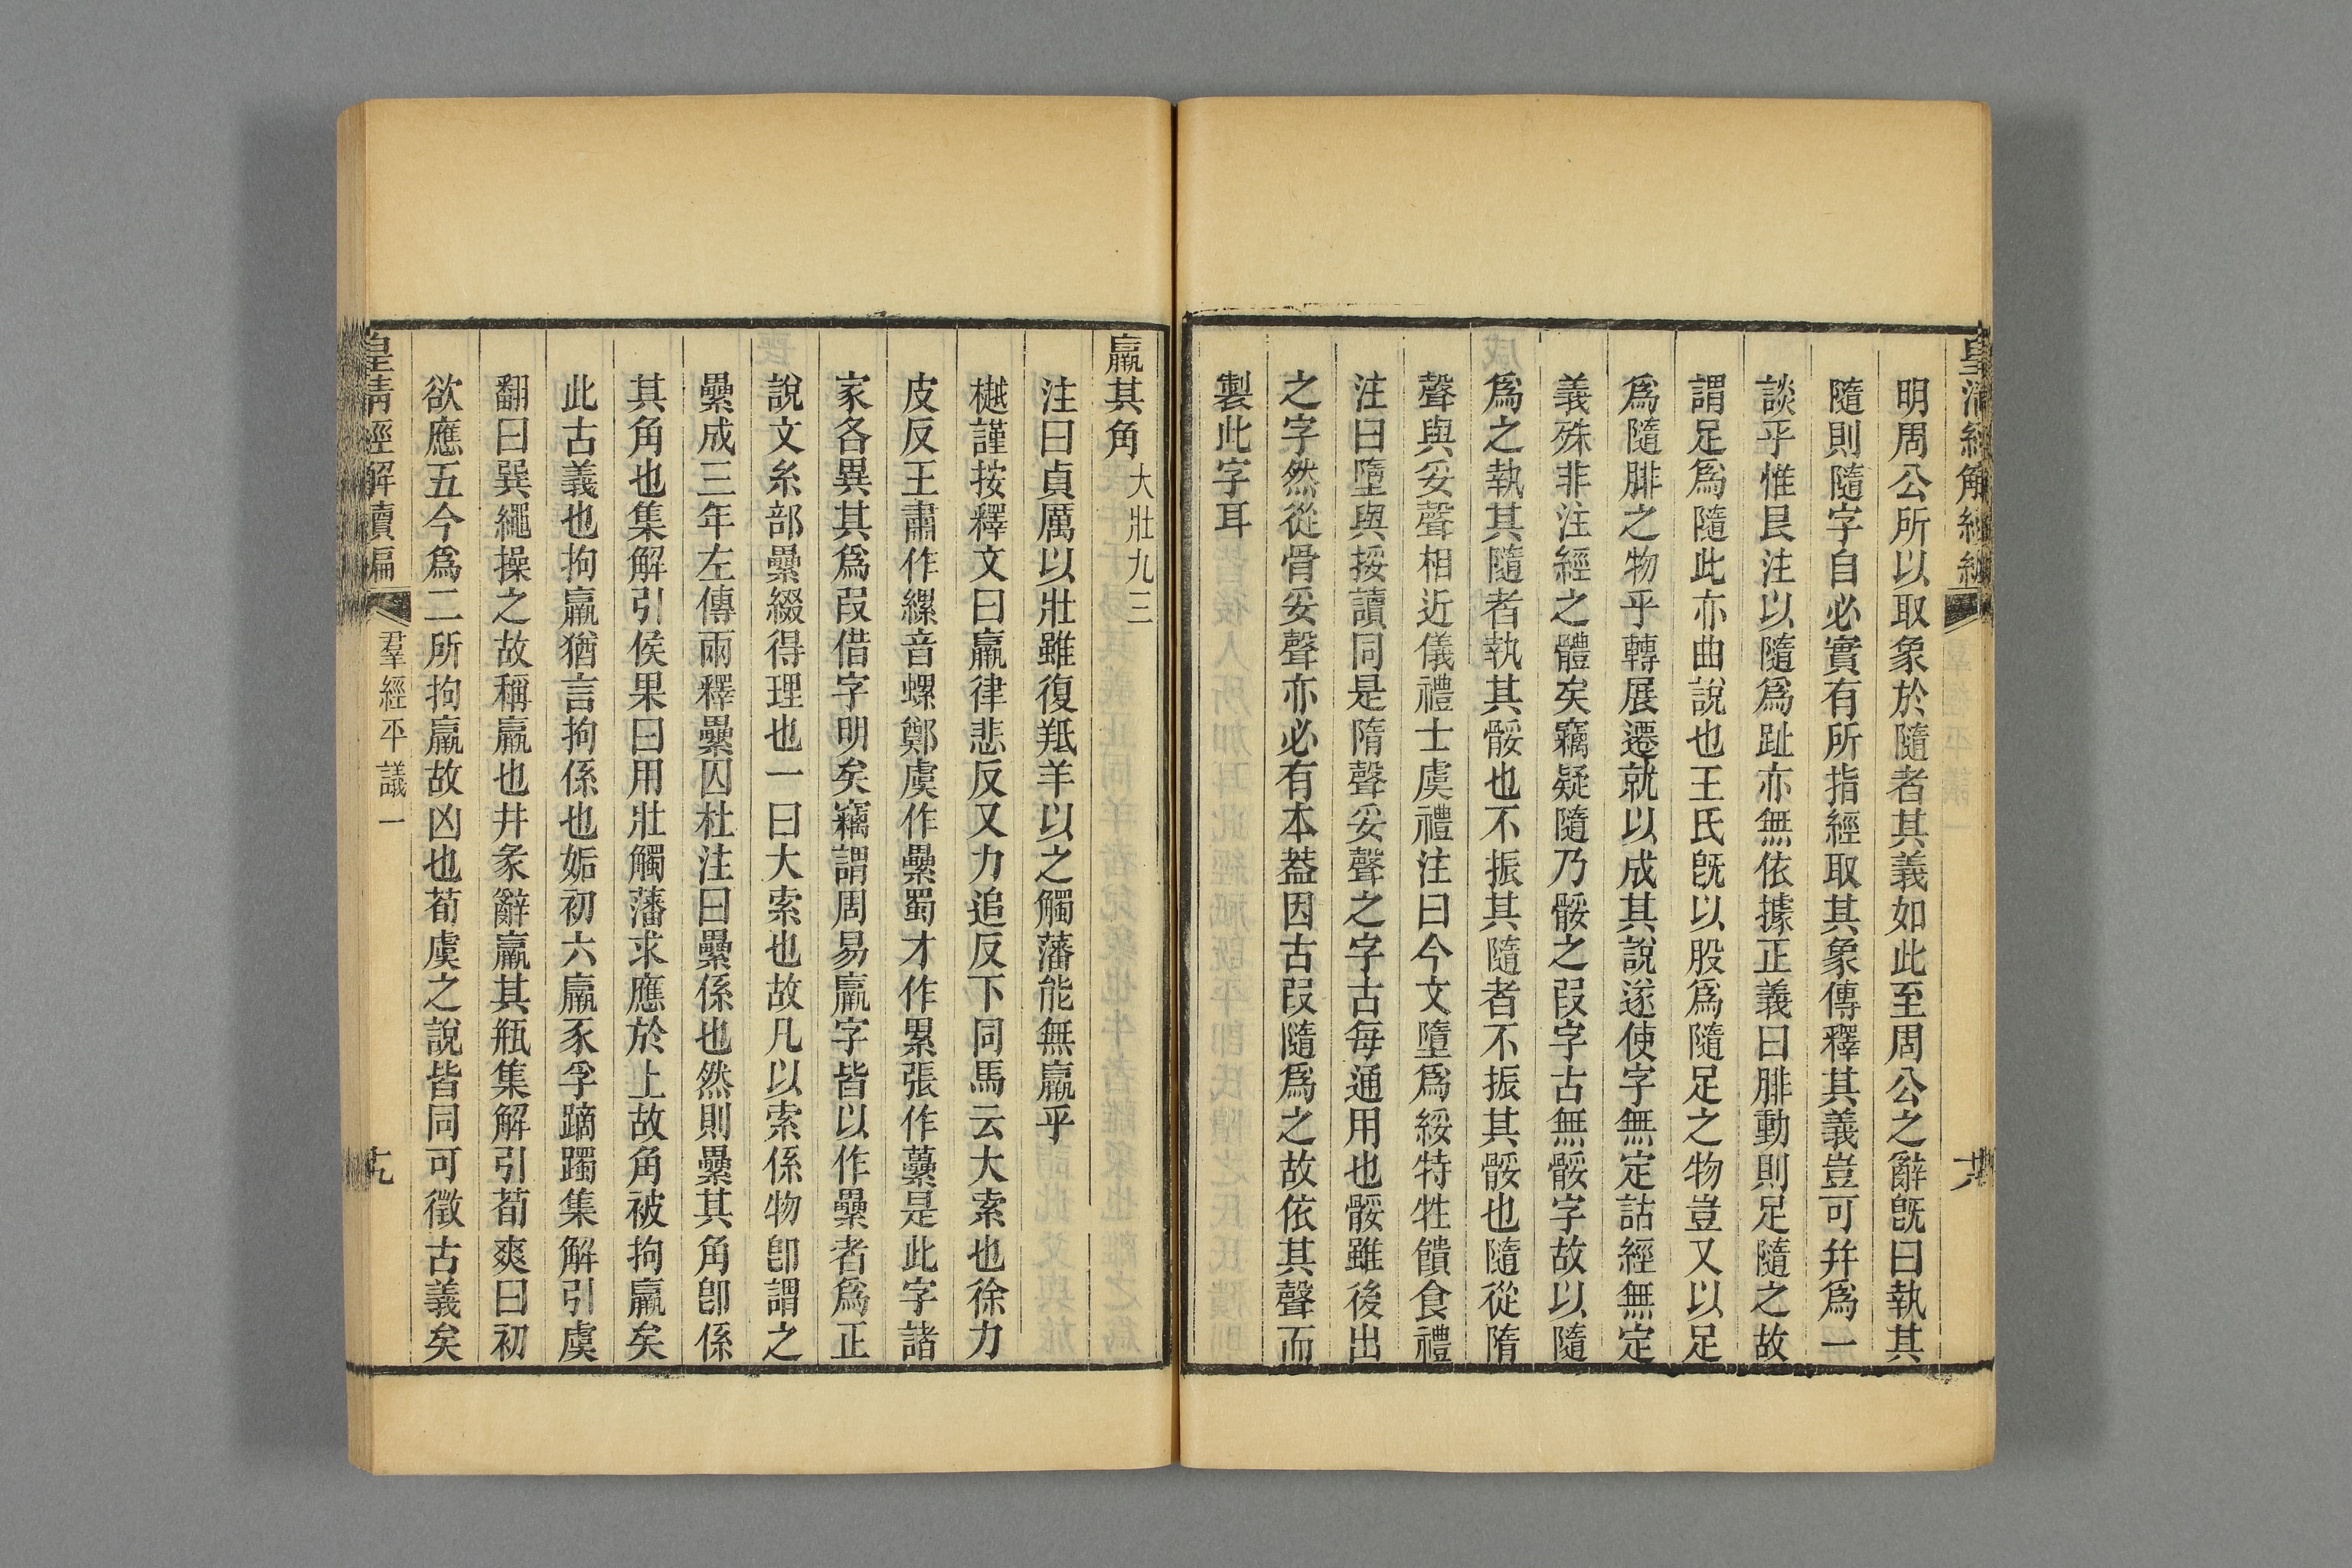 明周公所以取象於隨者其義如此至周公之辭旣曰執其
隨則隨字自必實有所指經取其象傳釋其義豈可幷爲一
談乎惟艮注以隨爲趾亦無依據正義曰腓動則足隨之故
謂足爲隨此亦曲說也王氏旣以股爲隨足之物豈又以足
爲隨腓之物乎轉展遷就以成其說遂使字無定詁經無定
義殊非注經之體矣竊疑隨乃骽之叚字古無骽字故以隨
爲之執其隨者執其骽也不振其隨者不振其骽也隨從隋
聲與妥聲相近儀禮士虞禮注曰今文墮爲綏特牲饋食禮
注曰墮與挼讀同是隋聲妥聲之字古每通用也骽雖後出
之字然從骨妥聲亦必有本葢因古叚隨爲之故依其聲而
製此字耳
羸其角大壯九三
注曰貞厲以壯雖復羝羊以之觸藩能無羸乎
樾謹按釋文曰羸律悲反又力追反下同馬云大索也徐力
皮反王肅作縲音螺鄭虞作纍蜀才作累張作虆是此字諸
家各異其爲叚借字明矣竊謂周易羸字皆以作纍者爲正
說文糸部纍綴得理也一曰大索也故凡以索係物卽謂之
纍成三年左傳兩釋纍囚杜注曰纍係也然則纍其角卽係
其角也集解引侯果曰用壯觸藩求應於上故角被拘羸矣
此古義也拘羸猶言拘係也姤初六羸豕孚蹢躅集解引虞
翻曰巽繩操之故稱羸也井彖辭羸其瓶集解引荀爽曰初
欲應五今爲二所拘羸故凶也荀虞之說皆同可徵古義矣
皇淸經解續編
羣經平議一
十九